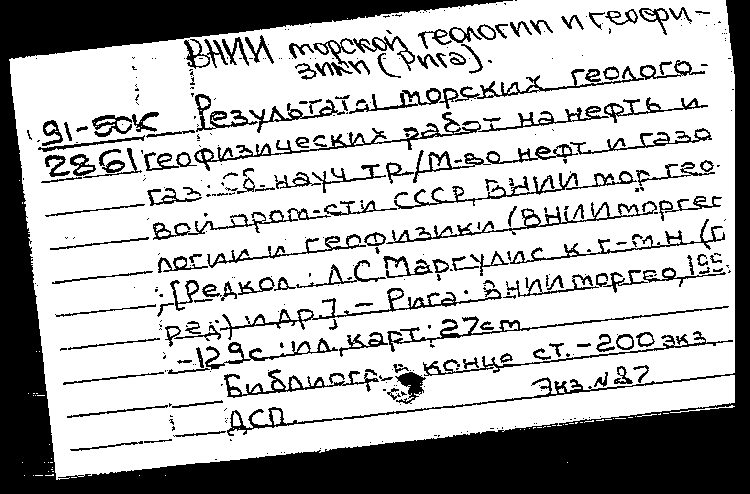 ВНИИ морской геологии и геофи-
зики (Рига).
91-50К Результаты морских геолого-
2861 геофизических работ на нефть и
газ: Сб. науч тр/М-во нефт. и газо
вой пром-сти СССР, ВНИИ мор. гео
логии и геофизики (ВНИИморгео
; [Редкол.: Л.С. Маргулис к. г.-м.н. (г
ред) и др.]. - Рига: ВНИИморгео, 199
-129с.: ил, карт; 27cm
Библиогр. в конце ст. - 200 экз
ДСП. Экз. №87